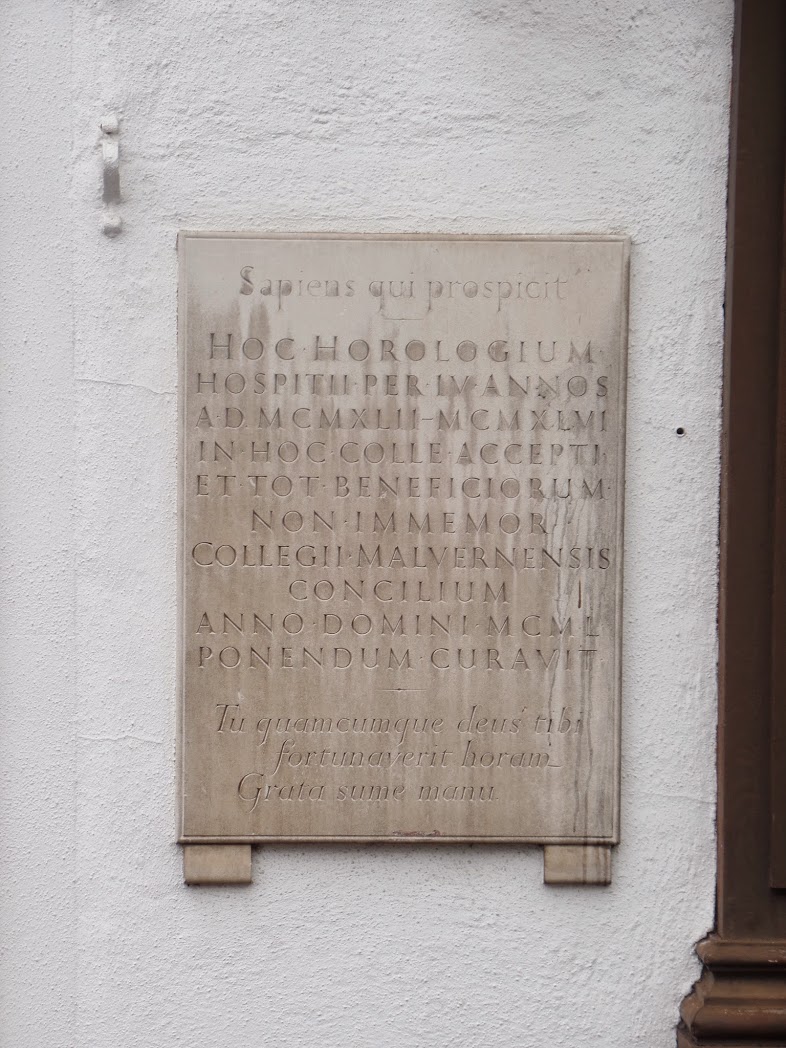 Sapiens qui prospicit
HOC·HOROLOGIUM·
HOSPITII·PER·IV·ANNOS
A·D·MCMXLII–MCMXLVI
IN·HOC·COLLE·ACCEPTI·
ET·TOT·BENEFICIORUM·
NON·IMMEMOR
COLLEGII·MALVERNENSIS
CONCILIUM
ANNO·DOMINI·MCML
PONENDUM·CURAVIT
Tu quamcumque deus tibi
fortunaverit horam
Grata sume manu